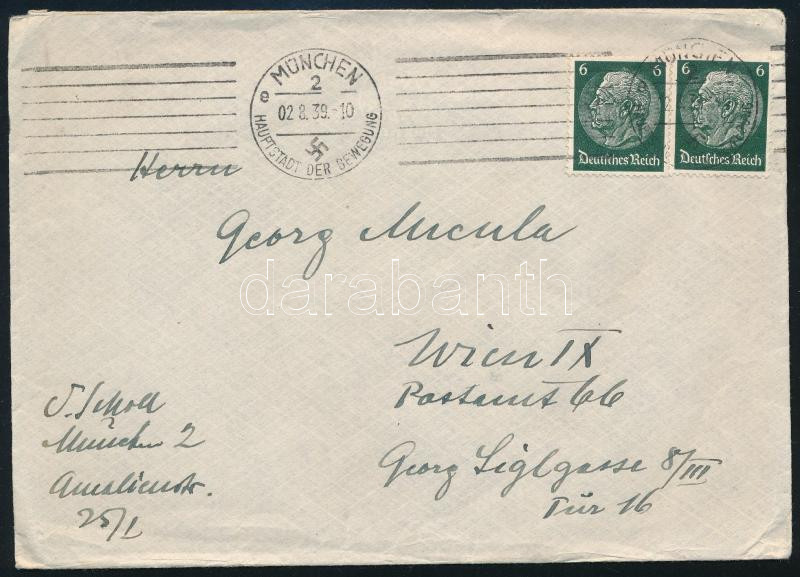 MÜNCHEN
2
e
02.8.39.-10
HAUPTSTADT DER BEWEGUNG
6 6
Deutsches Reich
MÜNCHEN
6 6
Deutsches Reich
Herrn
Georg Micula
darabanth
Wien IX
Postamt 66
Georg Siglgasse 8/III
Tür 16
S. Scholl
München 2
Amalienstr.
25/I